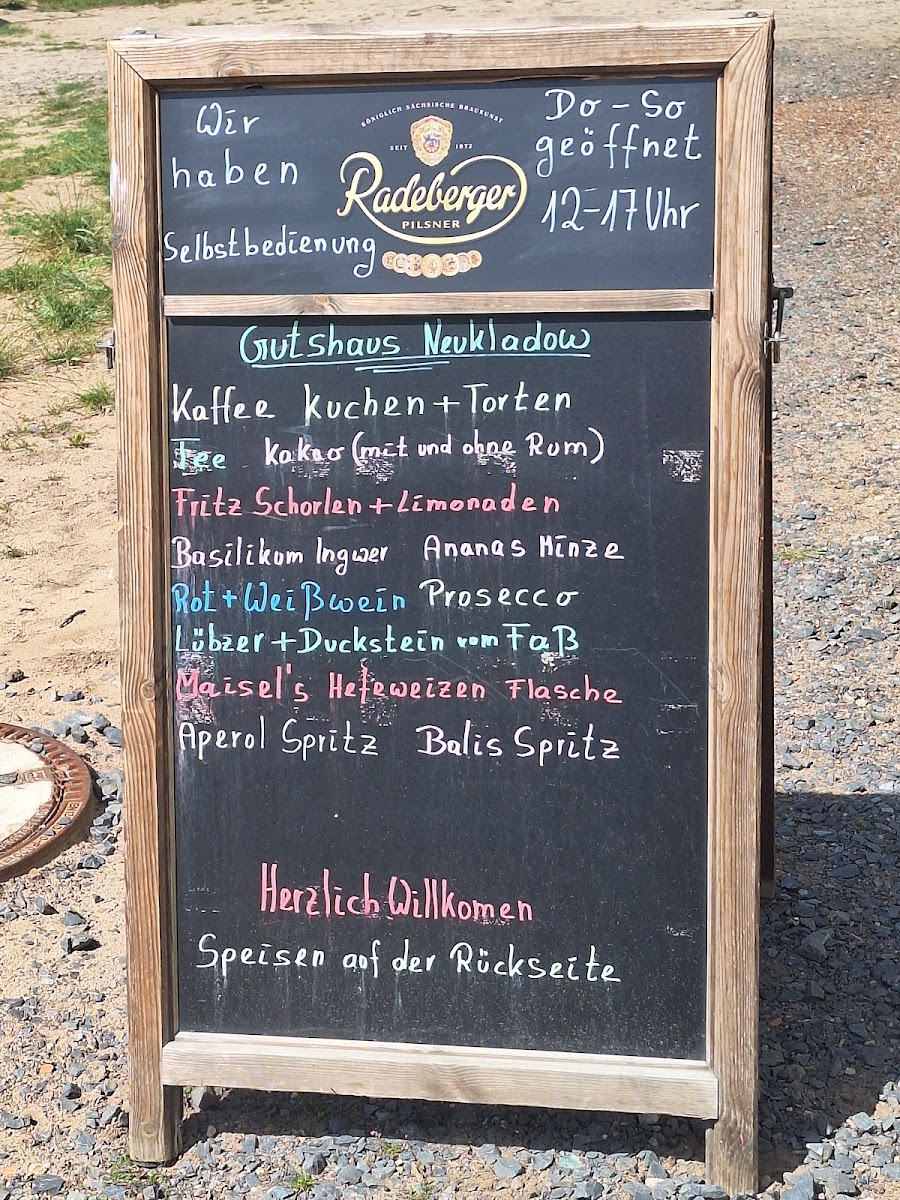 Wir
haben
Selbstbedienung
KÖNIGLICH SÄCHSISCHE BRAUKUNST
SEIT 1872
Radeberger
PILSNER
Do - So
geöffnet
12-17 Uhr
Gutshaus Neukladow
Kaffee Kuchen + Torten
Tee Kakao (mit und ohne Rum)
Fritz Schorlen + Limonaden
Basilikum Ingwer Ananas Minze
Rot + Weißwein Prosecco
Lübzer + Duckstein vom Faß
Maisel's Hefeweizen Flasche
Aperol Spritz Balis Spritz
Herzlich Willkomen
Speisen auf der Rückseite